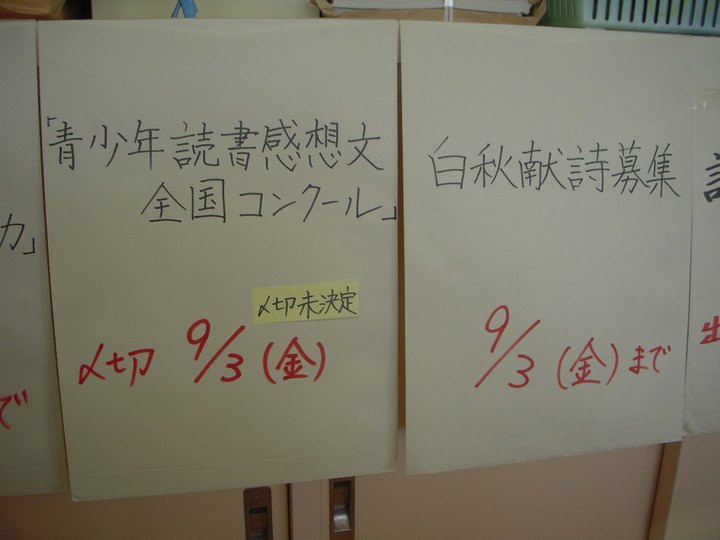 力」
で
「青少年読書感想文
全国コンクール」
〆切未決定
〆切 9/3(金)
白秋献詩募集
9/3(金)まで
出